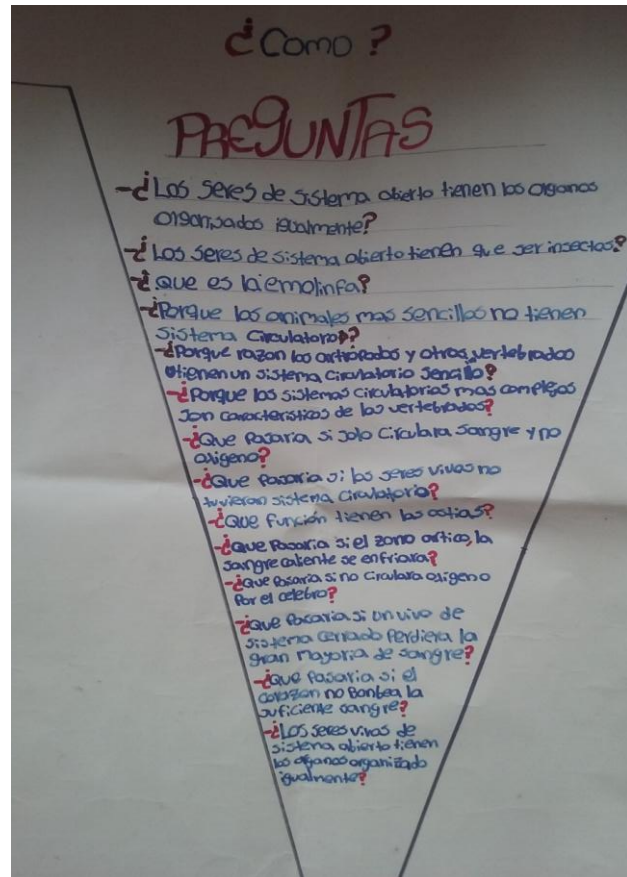 ¿Como?
PREGUNTAS
-¿Los seres de sistema abierto tienen los organos
organisados igualmente?
-¿Los seres de sistema abierto tienen que ser insectos?
-¿que es la emolinfa?
-¿Porque los animales mas sencillos no tienen
sistema circulatorio?
-¿Porque razon los artrópodos y otros vertebrados
tienen un sistema circulatorio sencillo?
-¿Porque los sistemas circulatorios mas complejos
son caracteristicos de los vertebrados?
-¿Que pasaria si solo circulara sangre y no
oxigeno?
-¿Que pasaria si los seres vivos no
tuvieran sistema circulatorio?
-¿Que función tienen las ostias?
-¿Que pasaria si el zono artico, la
sangre caliente se enfriara?
-¿que pasaria si no circulara oxigeno
por el celebro?
-¿que pasaria si un vivo de
sistema cerrado perdiera la
gran mayoria de sangre?
-¿que pasaria si el
corazon no bontea la
suficiente sangre?
-¿Los seres vivos de
sistema abierto tienen
los organos organizado
igualmente?